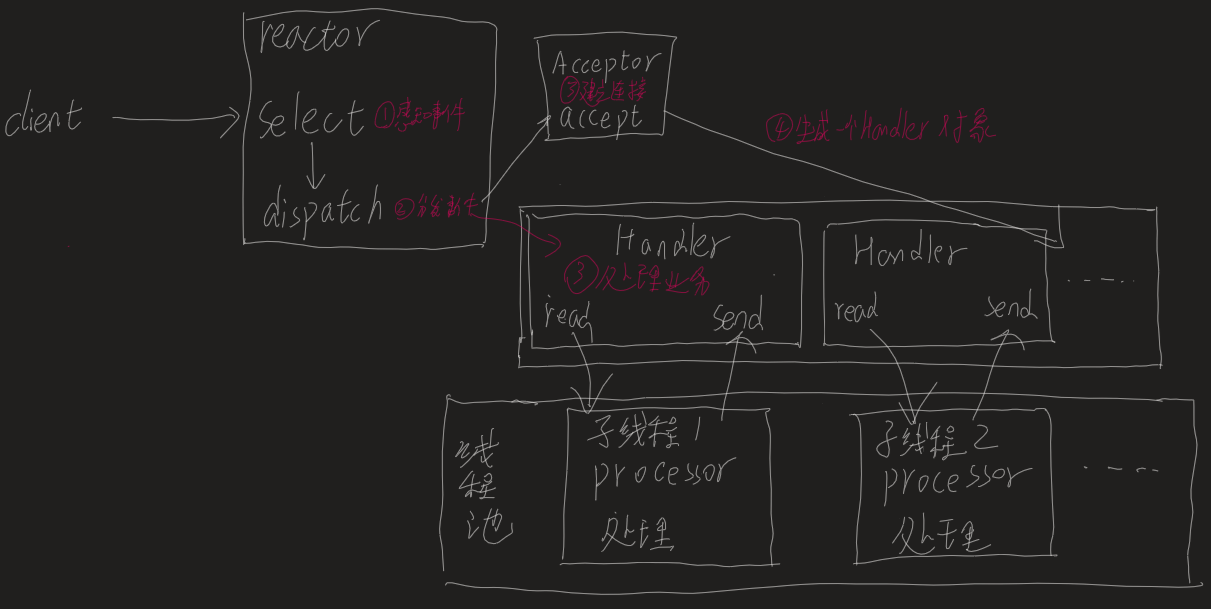 reactor
client
select ①感知事件
dispatch ②分发事件
Acceptor
③建立连接
accept
④生成一个Handler对象
Handler
③处理业务
read
send
Handler
read
send
线
程
池
子线程1
processor
处理
子线程2
processor
处理